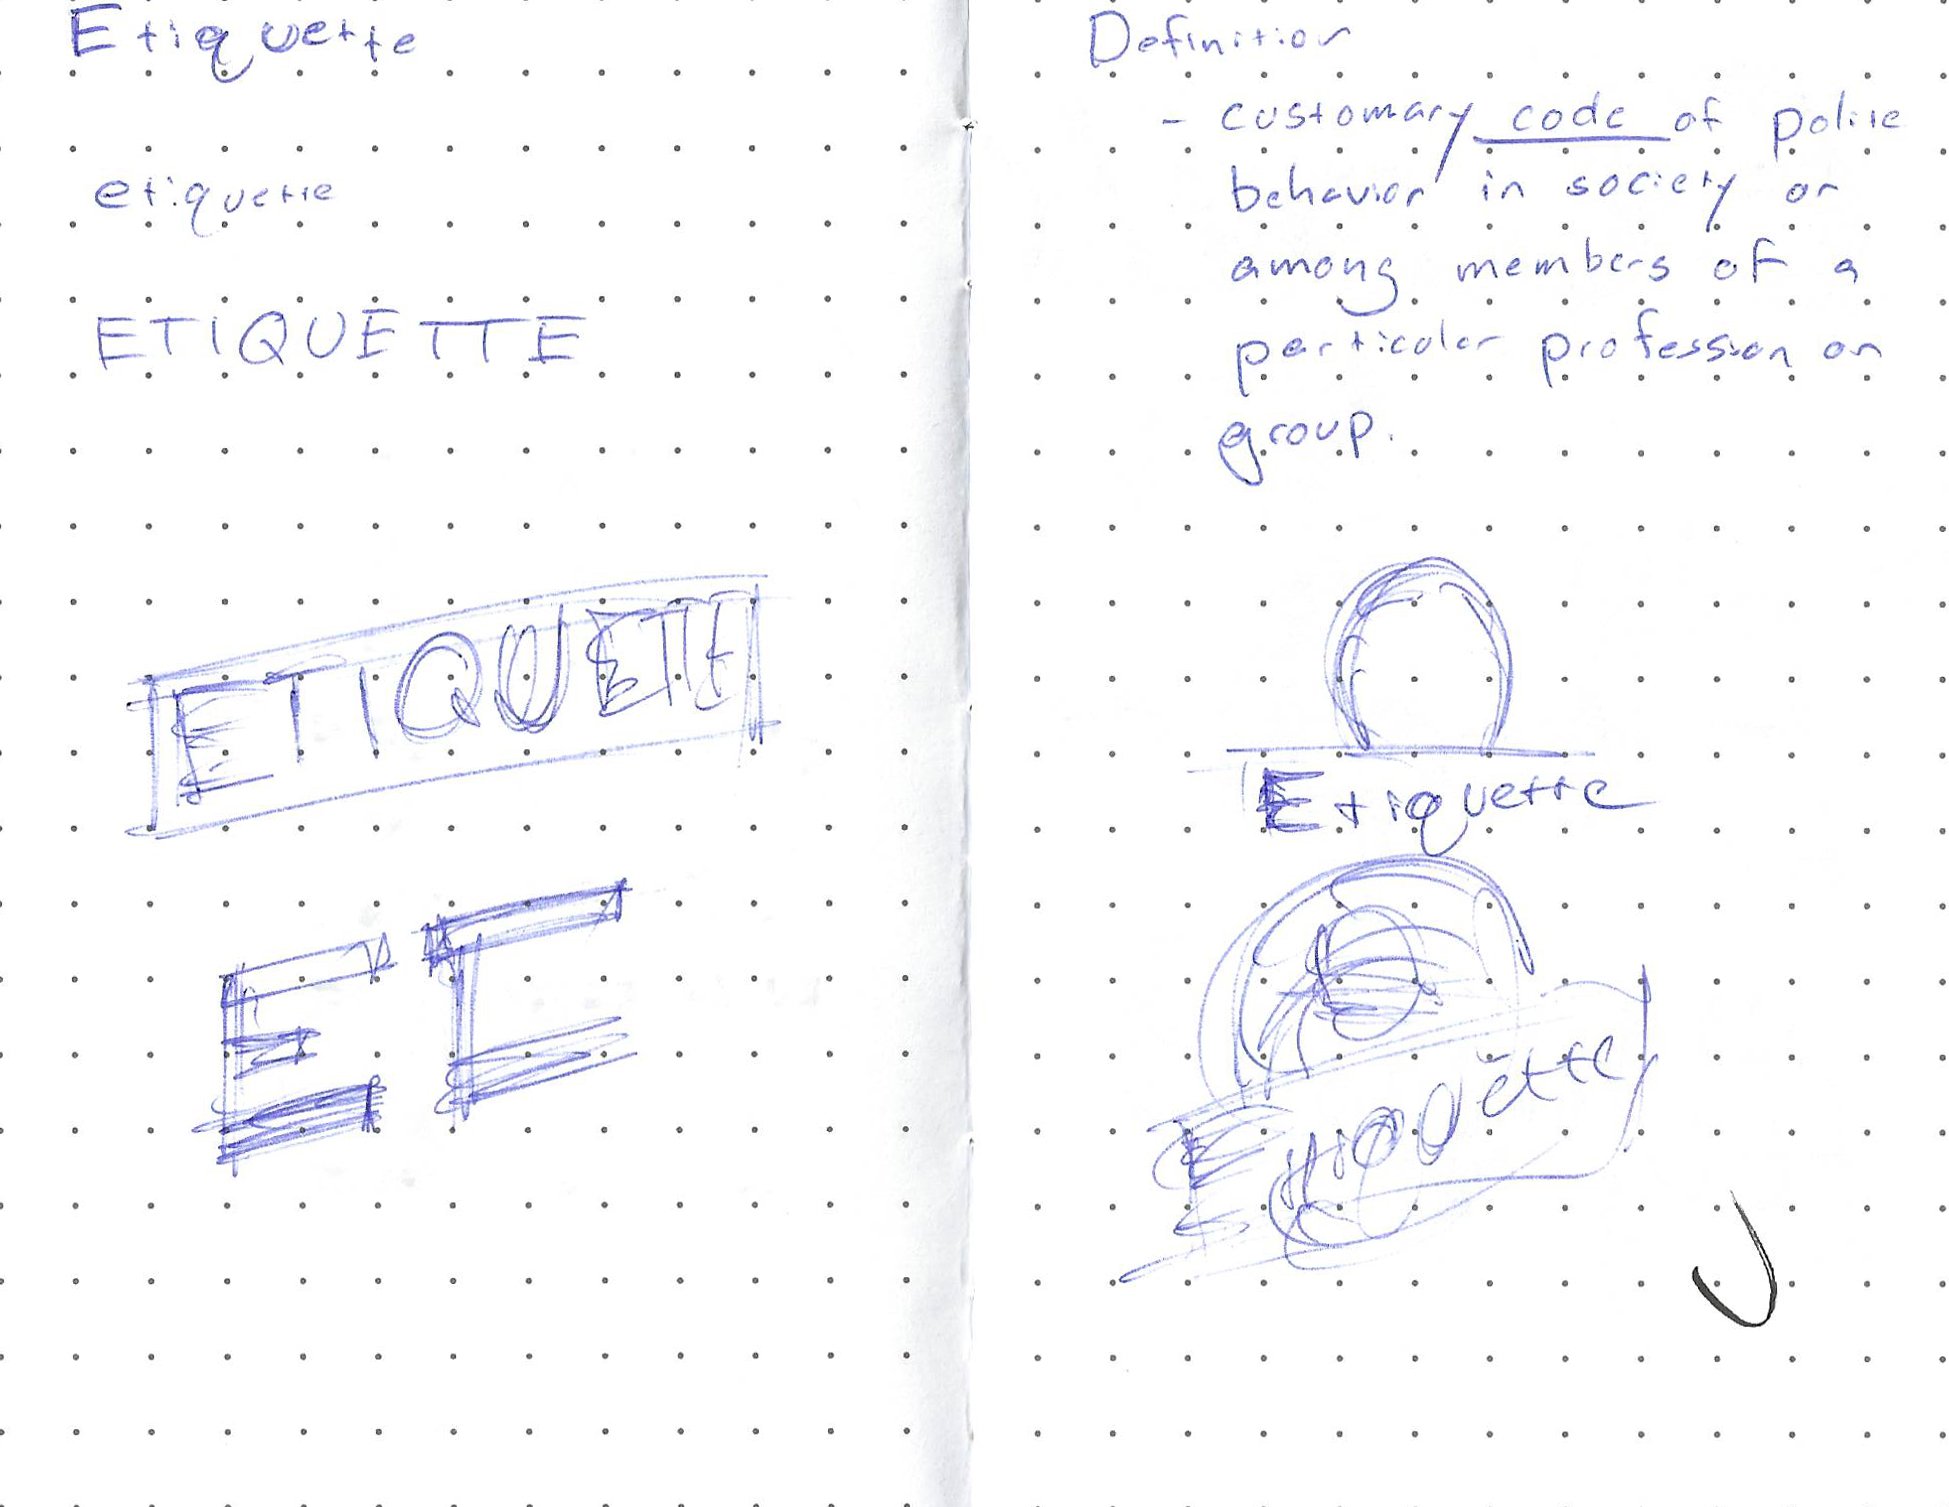 Etiquette
etiquette
ETIQUETTE
ETIQUETTE
Definition
- customary code of polite
behavior in society or
among members of a
particular profession or
group.
Etiquette
Etiquette